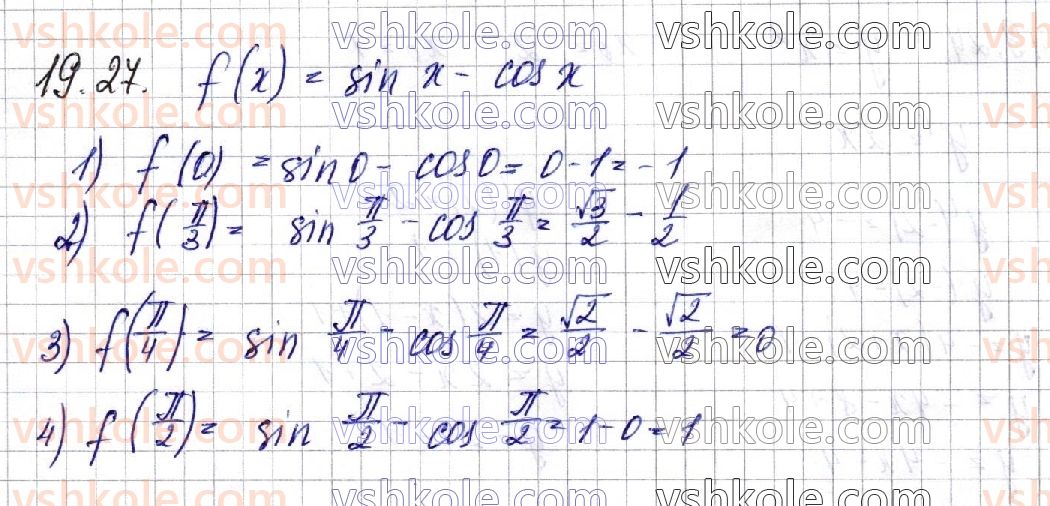 vshkole.com vshkole.com vshkole.com
19.27. f(x) = sin x - cos x
vshkole.com vshkole.com vshkole.com
1) f(0) = sin 0 - cos 0 = 0 - 1 = -1
vshkole.com vshkole.com vshkole.com
2) f(π/3) = sin π/3 - cos π/3 = √3/2 - 1/2
vshkole.com vshkole.com vshkole.com
3) f(π/4) = sin π/4 - cos π/4 = √2/2 - √2/2 = 0
vshkole.com vshkole.com vshkole.com
4) f(π/2) = sin π/2 - cos π/2 = 1 - 0 = 1
vshkole.com vshkole.com vshkole.com